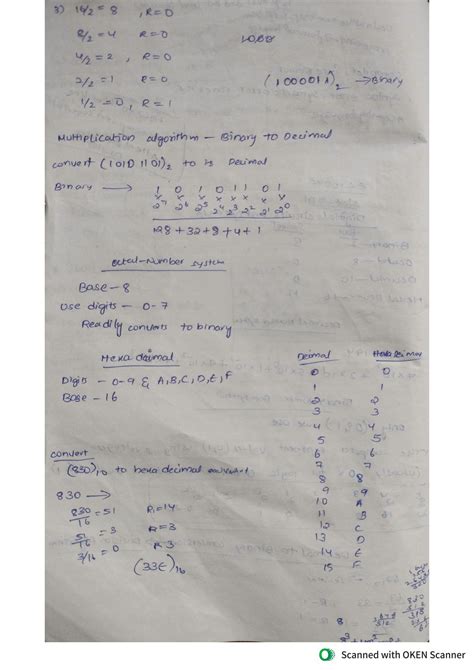 3) 16/2 = 8 , R=0
8/2 = 4 R=0
4/2 = 2 , R=0
2/2 = 1 R=0
1/2 = 0, R=1
→ Binary
Multiplication algorithm - Binary to Decimal
convert (10101101)2 to its Decimal
Binary → 1 0 1 0 1 1 0 1
x x x x x x x x
2^7 2^6 2^5 2^4 2^3 2^2 2^1 2^0
128+32+8+4+1
Octal-Number system
Base - 8
Use digits - 0-7
Readily converts to binary
Hexa decimal
Digits - 0-9 & A,B,C,D,E,F
Base - 16
Decimal Hexa decimal
0 0
1 1
2 2
3 3
4 4
5 5
6 6
7 7
8 8
9 9
10 A
11 B
12 C
13 D
14 E
15 F
convert
(830)10 to hexa decimal
830 →
830/16 = 51 R=14
51/16 = 3 R=3
3/16 = 0 R 3
(33E)16
Scanned with OKEN Scanner